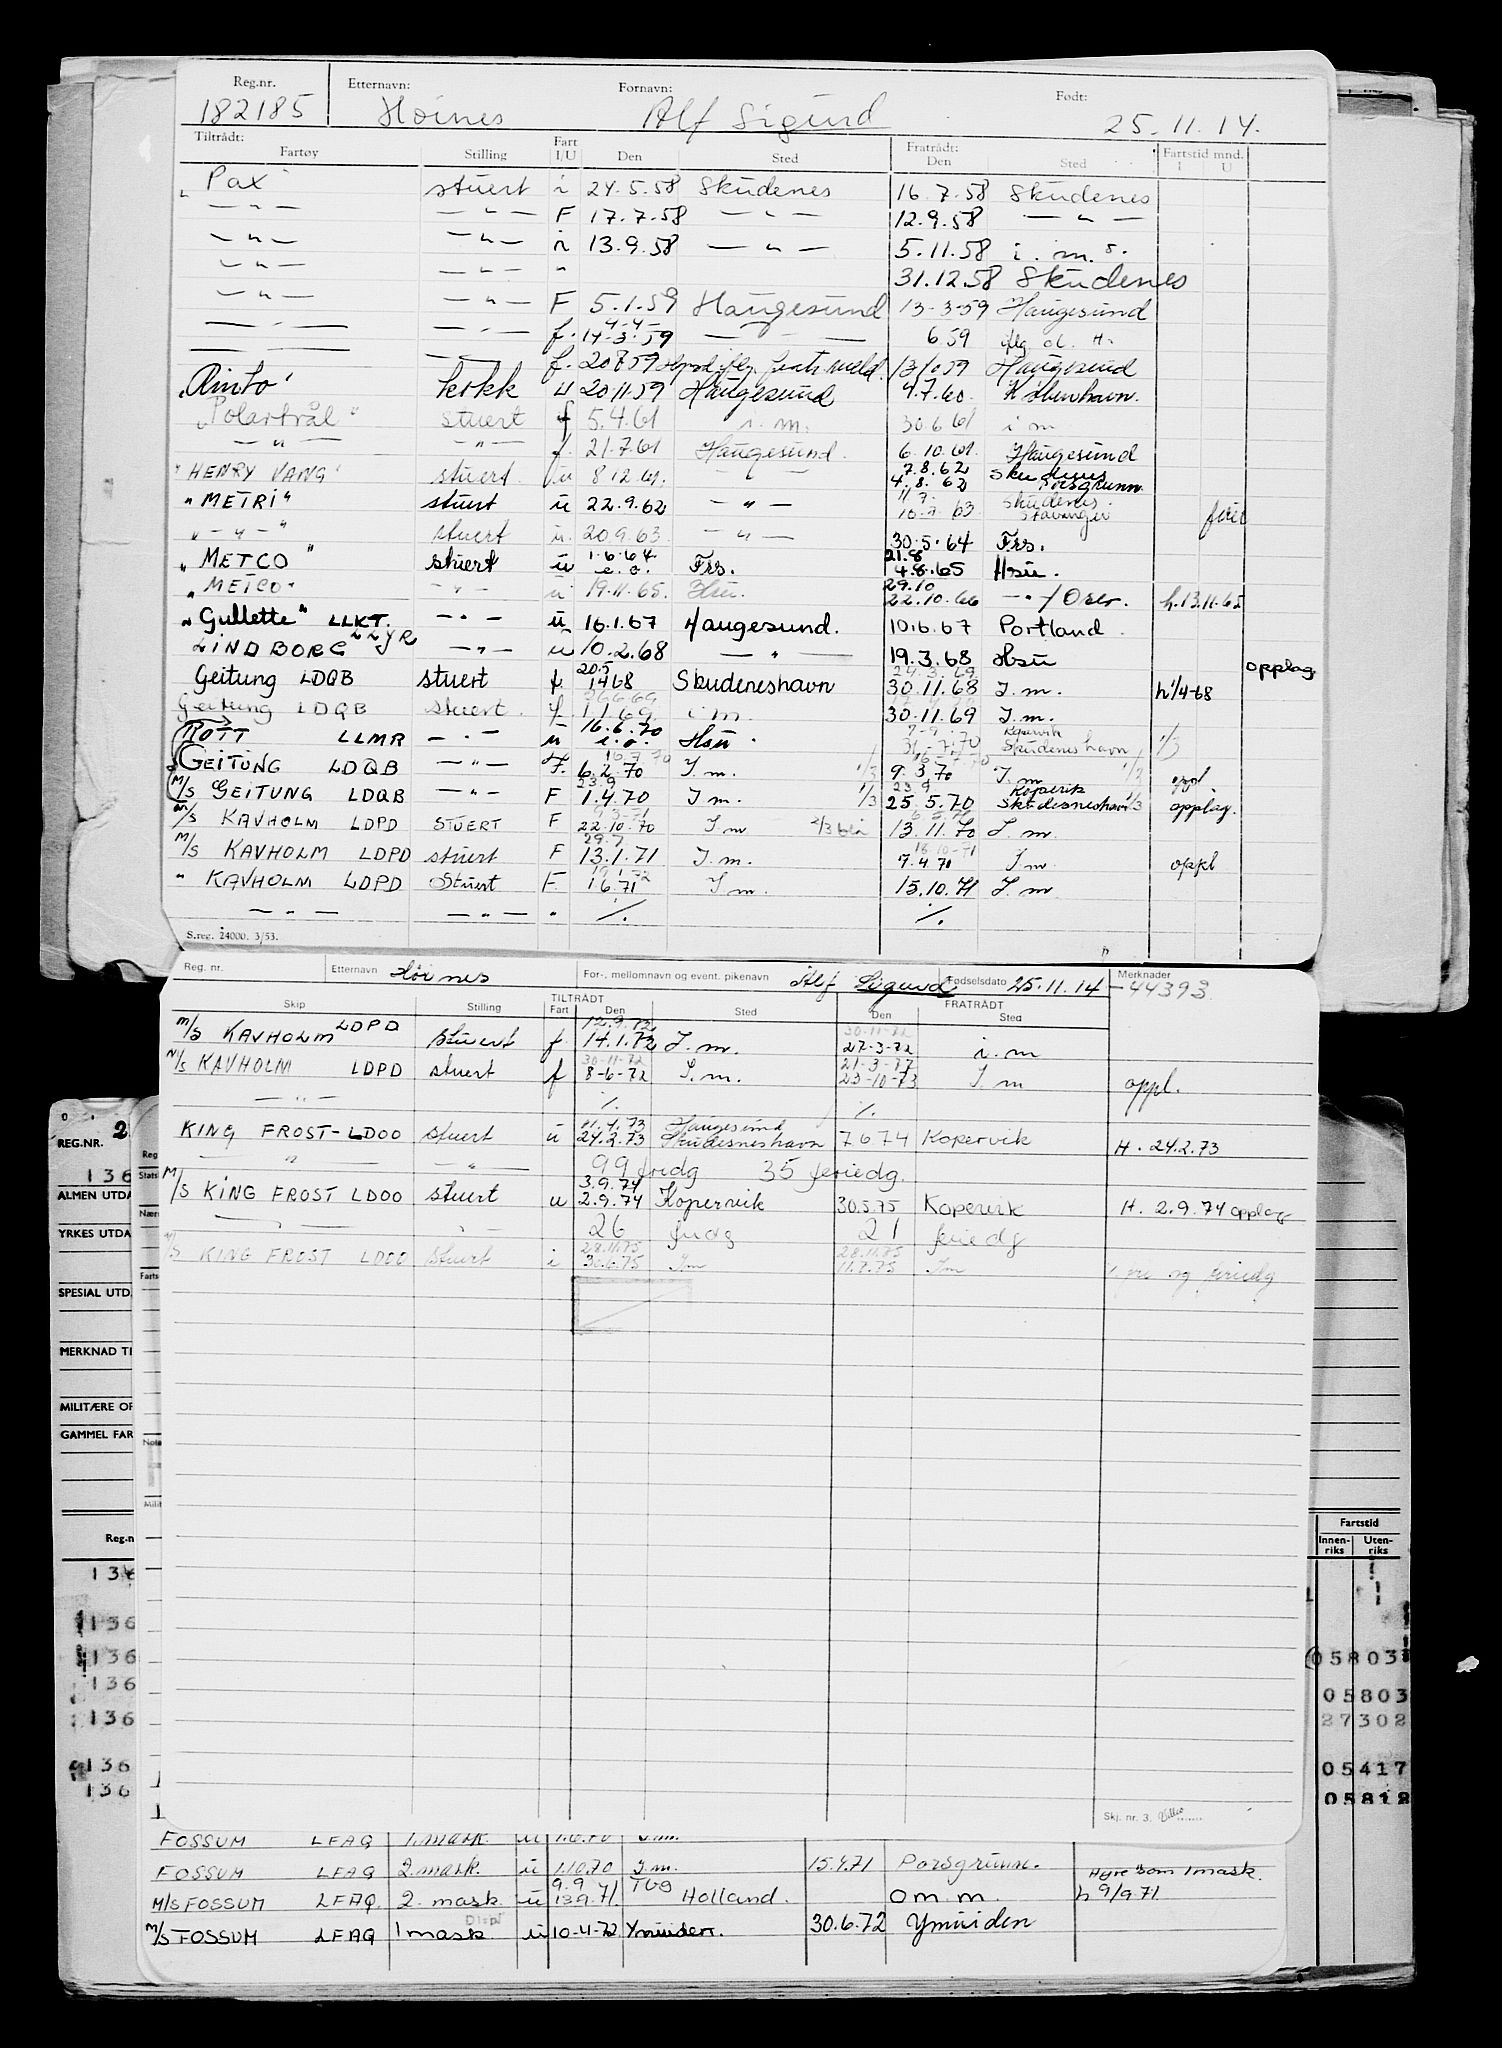 Reg.nr. Etternavn: Fornavn: Født:
182185 Høines Alf Sigurd 25.11.14.
Tiltrådt: Fart Fratrådt: Fartstid mnd.
Fartøy Stilling I/U Den Sted Den Sted I U
"Pax" stuert i 24.5.58 Skudenes 16.7.58 Skudenes
— " — — " — F 17.7.58 — " — 12.9.58 — " —
— " — — " — i 13.9.58 — " — 5.11.58 i.m.
— " — — " — " 31.12.58 Skudenes
— " — — " — F 5.1.59 Haugesund 13-3-59 Haugesund
4-4-
— " — — " — f. 14-3-59 — 6 59
f. 20859 13/1059 Haugesund
"Rinto" kokk u 20.11.59 Haugesund 4.7.60. København.
"Polartrål" stuert f 5.4.61 i.m. 30.6.61 i m
— " — — " — f. 21.7.61 Haugesund. 6.10.61. Haugesund
7.8.62 Skudenes
"HENRY VANG" stuert. u 8 12.61. — " — 4.8.62 Porsgrunn
"METRI" stuert u 22.9.62 — " — 63 Skudenes. Stavanger
— " — stuert u. 20.9.63 — " — 30.5.64 Frs.
1.6.64. 21.8
"METCO" stuert u e.o. Frs. 4.8.65 Hsu.
29.10
"METCO" — " — u 19.11.65. Hsu. 22.10.66 — " — / Oslo. h.13.11.65
"Gullette" LLKT. — " — u 16.1.67 Haugesund. 10.6.67 Portland.
LINDBORG LLYR — " — u 10.2.68 — " — 19.3.68 Hsu opplag
20.5 24.3.69
Geitung LDQB stuert f. 1468 Skudeneshavn 30.11.68 I.m. h 1/4-68
Geitung LDQB stuert. f 1.1.69. i m. 30.11.69 I.m.
16.6.70 Kopervik
ROTT LLMR — " — u e.o. Hsu. 31-7.70 Skudeneshavn 1/3
16.7.70
GEITUNG LDQB — " — F. 6.2.70 I.m. 1/3 9.3.70 I.m 1/2 oppl
23.9 23.9 Kopervik
M/S GEITUNG LDQB — " — F 1.4.70 I m. 1/3 25.5.70 Skudesneshavn 1/3 opplag.
M/S KAVHOLM LDPD STUERT F 22.10.70 I.m 13.11.70 I.m.
29.7 18-10-71
M/S KAVHOLM LDPD stuert F 13.1.71 I.m. 7.4.71 I.m oppl
" KAVHOLM LDPD Stuert F 1.6.71 I m. 15.10.71 I.m
— " — — " — " %. %.
S.reg. 24000. 3/53.
Reg. nr. Etternavn Høines For-, mellomnavn og event. pikenavn Alf Sigurd Fødselsdato 25.11.14 Merknader
—44393
Skip Stilling TILTRÅDT Fart Den Sted FRATRÅDT Den Sted
12.9.72 30-11-72
M/S KAVHOLM LDPD stuert f. 14.1.72 I.m. 27-3-72 i.m
30-11-72 21-3-77
M/S KAVHOLM LDPD stuert f 8-6-72 I.m. 23-10-73 I.m oppl.
— " — %. %.
4.4.73 Haugesund
KING FROST-LDOO stuert u 24.2.73 Skudesneshavn 7674 Kopervik H. 24.2.73
— " — — " — 99 fridg 35 feriedg.
3.9.74
M/S KING FROST LDOO stuert u 2.9.74 Kopervik 30.5.75 Kopervik H. 2.9.74 opplag
— " — — " — 26 fridg 21 feriedg
28.11.75 28.11.75
M/S KING FROST LDOO stuert i 30.6.75 I m 11.7.75 I m fri og feriedg
Skj. nr. 3.
REG.NR. 2
136
ALMEN UTDA
YRKES UTDA
SPESIAL UTD.
MERKNAD TI
MILITÆRE OF
GAMMEL FAR
Reg.n
136
136
136
136
136
136
136
Reg
Stats
Nær
Farts
Note
Milit
Fartstid
Innen-riks Uten-riks
1
1
05803
05803
27302
05417
05812
FOSSUM LFAQ 1.mask. u 1.6.70 I.m.
FOSSUM LFAQ 2.mask. u 1.10.70 I.m. 15.4.71 Porsgrunn. Hyre som 1mask.
9.9 Tbg
M/S FOSSUM LFAQ. 2. mask u 13.9.71. Holland. om m. h 9/9 71.
Disp
M/S FOSSUM LFAQ 1 mask u 10-4-72 Ymuiden. 30.6.72 Ymuiden